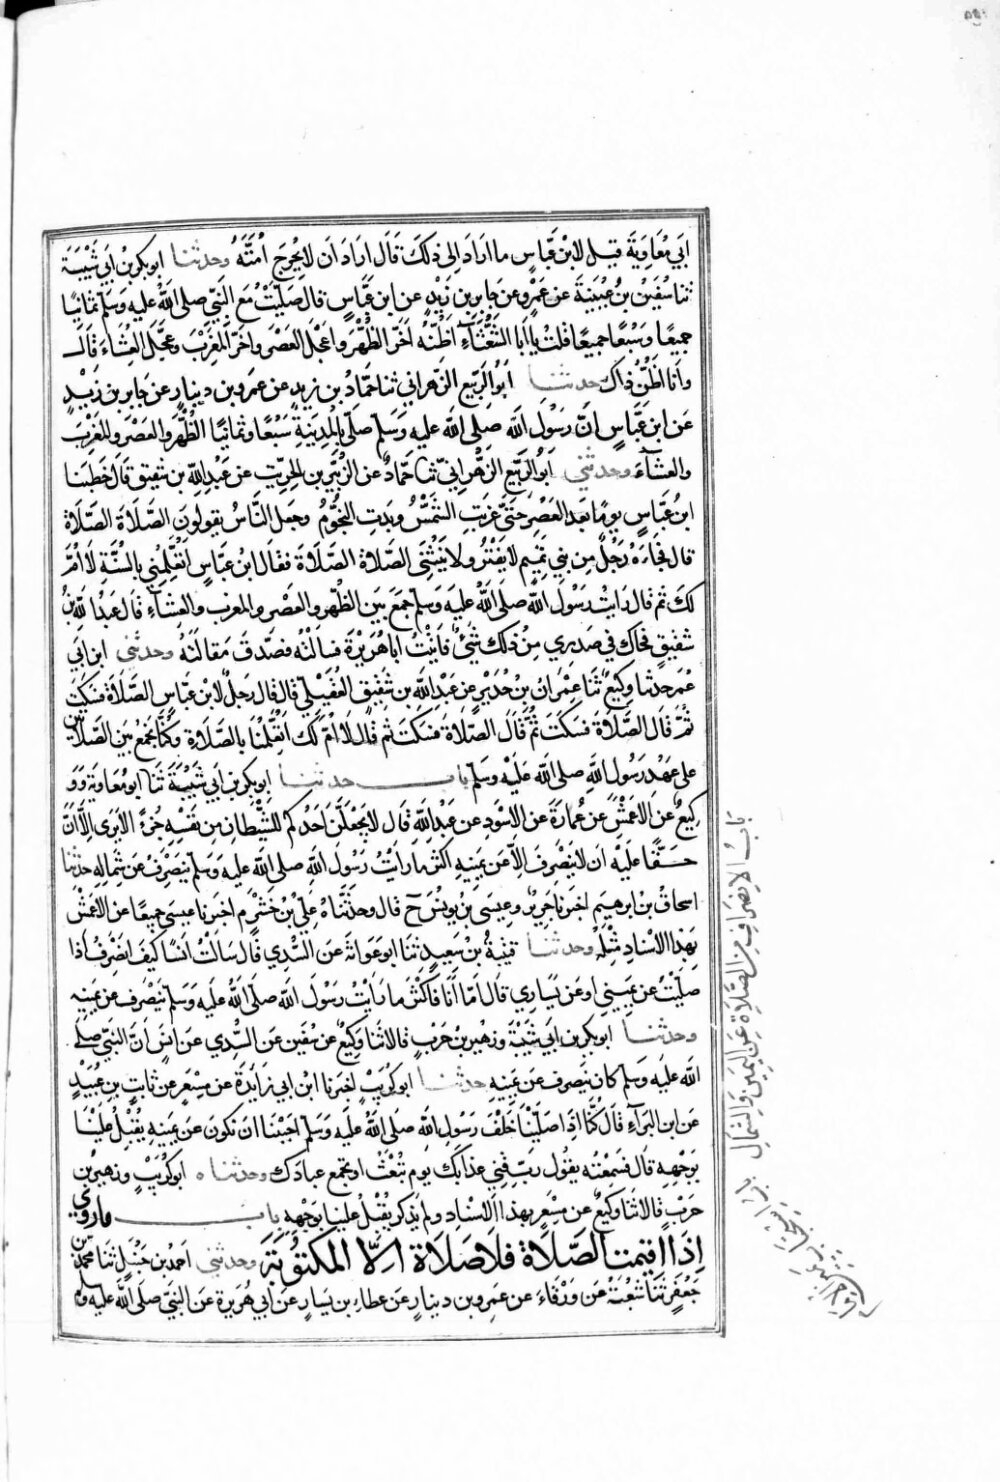 ابي معاوية قيل لابن عباس ما اراد الى ذلك قال اراد ان لا يحرج امته وحدثنا ابو بكر بن ابي شيبة
ثنا سفين بن عيينة عن عمرو عن جابر بن زيد عن ابن عباس قال صليت مع النبي صلى الله عليه وسلم ثمانيا
جميعا وسبعا جميعا قلت يا ابا الشعثاء اظنه اخر الظهر واعجل العصر واخر المغرب وعجل العشاء قال
وانا اظن ذاك حدثنا ابو الربيع الزهراني ثنا حماد بن زيد عن عمرو بن دينار عن جابر بن زيد
عن ابن عباس ان رسول الله صلى الله عليه وسلم صلى بالمدينة سبعا وثمانيا الظهر والعصر والمغرب
والعشاء وحدثني ابو الربيع الزهراني ثنا حماد عن الزبير بن الخريت عن عبد الله بن شقيق قال خطبنا
ابن عباس يوما بعد العصر حتى غربت الشمس وبدت النجوم وجعل الناس يقولون الصلاة الصلاة
قال فجاءه رجل من بني تميم لا يفتر ولا ينثني الصلاة الصلاة فقال ابن عباس اتعلمني بالسنة لا ام
لك ثم قال رايت رسول الله صلى الله عليه وسلم جمع بين الظهر والعصر والمغرب والعشاء قال عبد الله بن
شقيق فحاك في صدري من ذلك شيء فاتيت ابا هريرة فسالته فصدق مقالته وحدثني ابن ابي
عمر حدثنا وكيع ثنا عمران بن حدير عن عبد الله بن شقيق العقيلي قال قال رجل لابن عباس الصلاة فسكت
ثم قال الصلاة فسكت ثم قال الصلاة فسكت ثم قال لا ام لك اتعلمنا بالصلاة وكنا نجمع بين الصلاتين
على عهد رسول الله صلى الله عليه وسلم باب حدثنا ابو بكر بن ابي شيبة ثنا ابو معاوية وو
كيع عن الاعمش عن عمارة عن الاسود عن عبد الله قال لا يجعلن احدكم للشيطان من نفسه جزءا لا يرى الا ان
حقا عليه ان لا ينصرف الا عن يمينه اكثر ما رايت رسول الله صلى الله عليه وسلم ينصرف عن شماله حدثنا
اسحاق بن ابرهيم اخبرنا جرير وعيسى بن يونس ح قال وحدثناه علي بن خشرم اخبرنا عيسى جميعا عن الاعمش
بهذا الاسناد مثله وحدثنا قتيبة بن سعيد ثنا ابو عوانة عن السدي قال سالت انسا كيف انصرف اذا
صليت عن يميني او عن يساري قال اما انا فاكثر ما رايت رسول الله صلى الله عليه وسلم ينصرف عن يمينه
وحدثنا ابو بكر بن ابي شيبة وزهير بن حرب قالا ثنا وكيع عن سفين عن السدي عن انس ان النبي صلى
الله عليه وسلم كان ينصرف عن يمينه حدثنا ابو كريب اخبرنا ابن ابي زايدة عن مسعر عن ثابت بن عبيد
عن ابن البراء قال كنا اذا صلينا خلف رسول الله صلى الله عليه وسلم احببنا ان نكون عن يمينه يقبل علينا
بوجهه قال فسمعته يقول رب قني عذابك يوم تبعث او تجمع عبادك وحدثناه ابو كريب وزهير بن
حرب قالا ثنا وكيع عن مسعر بهذا الاسناد ولم يذكر يقبل علينا بوجهه باب ما روي
اذا اقيمت الصلاة فلا صلاة الا المكتوبة وحدثني احمد بن حنبل ثنا محمد بن
جعفر ثنا شعبة عن ورقاء عن عمرو بن دينار عن عطاء بن يسار عن ابي هريرة عن النبي صلى الله عليه وسلم
باب الانصراف من الصلاة عن اليمين والشمال